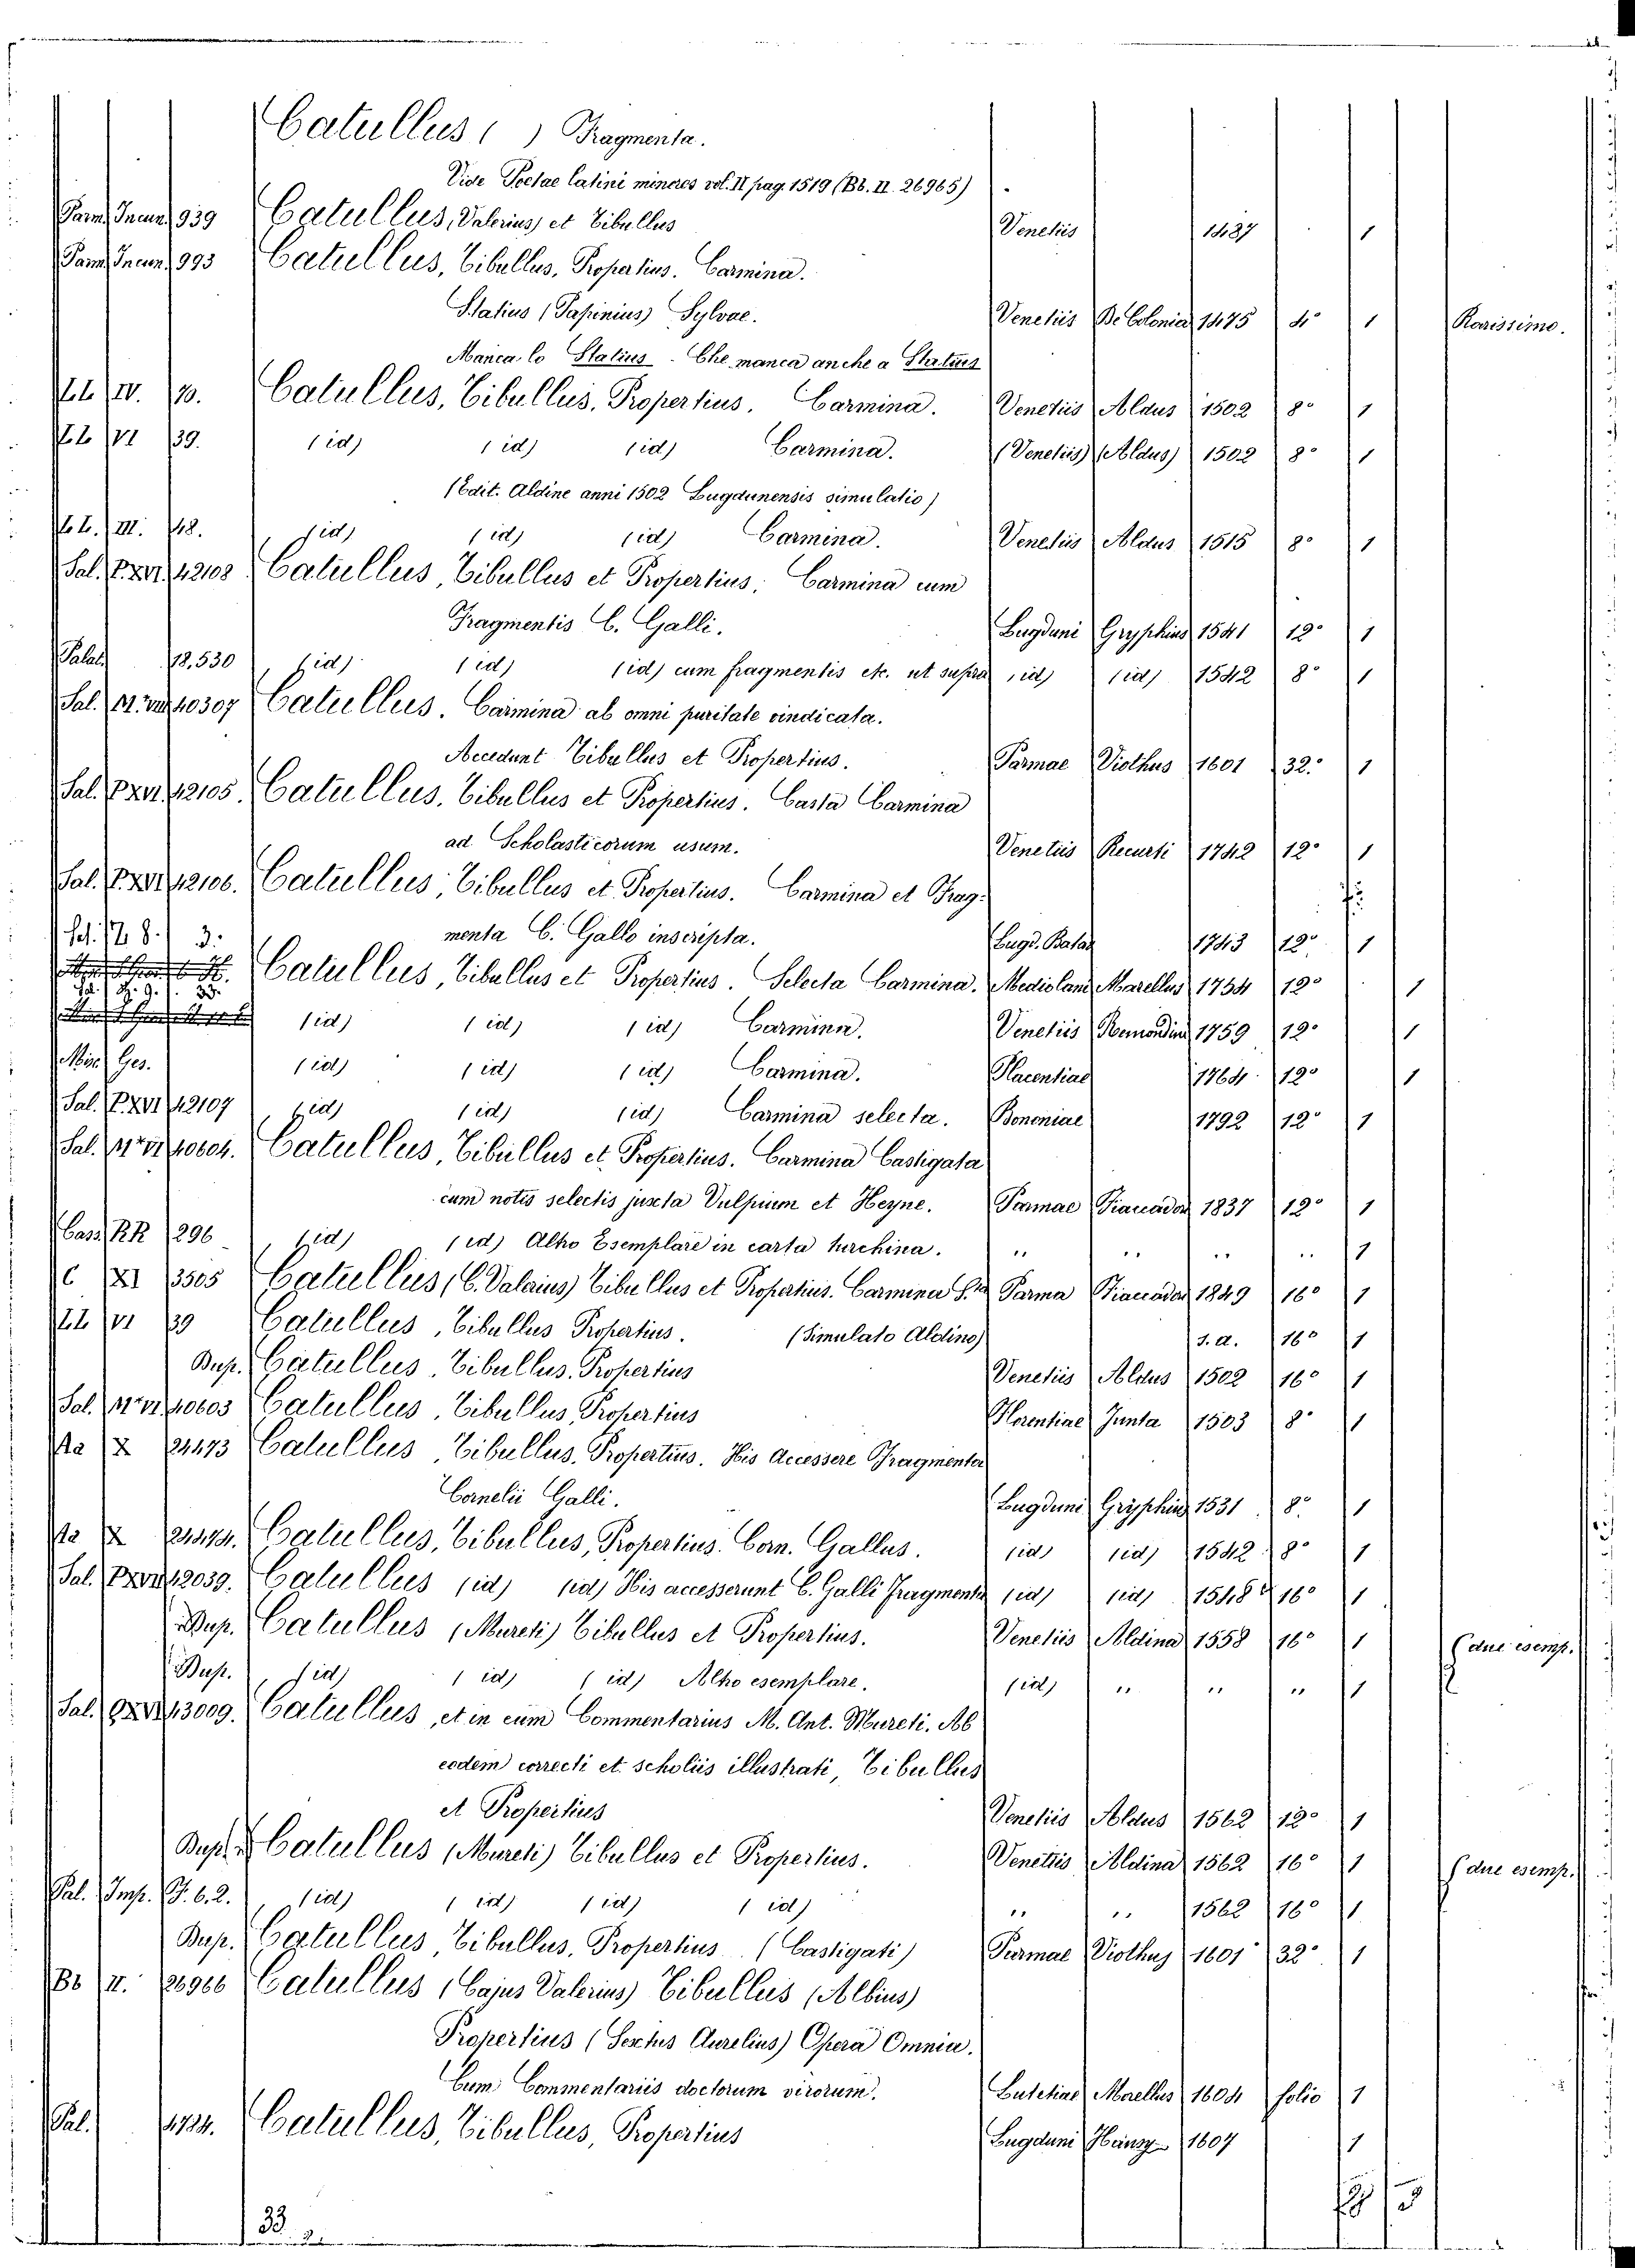 Catullus ( ) Fragmenta.
Vide Poetae latini minores vol. II pag. 1519 (Bb. II. 26965)
Parm. Incun. 939 Catullus, Valerius, et Tibullus Venetiis 1487 1
Parm. Incun. 993 Catullus, Tibullus, Propertius. Carmina.
Statius (Papinius) Sylvae. Venetiis De Colonia 1475 4° 1 Rarissimo.
Manca lo Statius - Che manca anche a Statius
LL IV. 70. Catullus, Tibullus, Propertius. Carmina. Venetiis Aldus 1502 8° 1
LL VI 39. (id) (id) (id) Carmina. (Venetiis) (Aldus) 1502 8° 1
(Edit. Aldine anni 1502 Lugdunensis simulatio)
LL. III. 48. (id) (id) (id) Carmina. Venetiis Aldus 1515 8° 1
Sal. P.XVI. 42108 Catullus, Tibullus et Propertius. Carmina cum
Fragmentis C. Galli. Lugduni Gryphius 1541 12° 1
Palat. 18,530 (id) (id) (id) cum fragmentis etc. ut supra (id) (id) 1542 8° 1
Sal. M. VIII 40307 Catullus. Carmina ab omni puritate vindicata.
Accedunt Tibullus et Propertius. Parmae Viothus 1601 32.° 1
Sal. P.XVI. 42105. Catullus, Tibullus et Propertius. Casta Carmina
ad Scholasticorum usum. Venetiis Recurti 1742 12° 1
Sal. P.XVI 42106. Catullus, Tibullus et Propertius. Carmina et Frag-
menta C. Gallo inscripta. Lugd. Batav 1743 12° 1
8. 3.
Catullus, Tibullus et Propertius. Selecta Carmina. Mediolani Marellus 1754 12° 1
33.
(id) (id) (id) Carmina. Venetiis Remondini 1759 12° 1
Misc. Ges. (id) (id) (id) Carmina. Placentiae 1764 12° 1
Sal. P.XVI 42107 (id) (id) (id) Carmina selecta. Bononiae 1792 12° 1
Sal. M. VI 40604. Catullus, Tibullus et Propertius. Carmina Castigata
cum notis selectis juxta Vulpium et Heyne. Parmae Fiaccadori 1837 12° 1
Cass. RR 296 (id) (id) Altro Esemplare in carta turchina. " " " " 1
C XI 3505 Catullus, (C. Valerius) Tibullus et Propertius. Carmina Parma Fiaccadori 1849 16° 1
LL VI 39 Catullus, Tibullus Propertius. (Simulato Aldino) s. a. 16° 1
Dup. Catullus, Tibullus, Propertius Venetiis Aldus 1502 16° 1
Sal. M. VI 40603 Catullus, Tibullus, Propertius Florentiae Junta 1503 8° 1
Aa X 24473 Catullus, Tibullus, Propertius. His Accessere Fragmenta
Cornelii Galli. Lugduni Gryphius 1531 8° 1
Aa X 24474. Catullus, Tibullus, Propertius. Corn. Gallus. (id) (id) 1542 8° 1
Sal. P.XVI 42039. Catullus (id) (id) His accesserunt C. Galli Fragmenta (id) (id) 1548 16° 1
Dup. Catullus (Mureti) Tibullus et Propertius. Venetiis Aldina 1558 16° 1 (due esemp.)
Dup. (id) (id) (id) Altro esemplare. (id) " " " 1
Sal. 43009. Catullus, et in eum Commentarius M. Ant. Mureti. Ab
eodem correcti et scholiis illustrati, Tibullus
et Propertius Venetiis Aldus 1562 12° 1
Dup. Catullus (Mureti) Tibullus et Propertius. Venetiis Aldina 1562 16° 1 (due esemp.)
Pal. Imp. F. 6. 2. (id) (id) (id) (id) " " 1562 16° 1
Dup. Catullus, Tibullus, Propertius. (Castigati) Parmae Viothus 1601 32° 1
Bb II. 26966 Catullus (Cajus Valerius) Tibullus (Albius)
Propertius (Sextus Aurelius) Opera Omnia.
Cum Commentariis doctorum virorum. Lutetiae Morellus 1604 folio 1
Pal. 4724. Catullus, Tibullus, Propertius Lugduni 1607 1
33